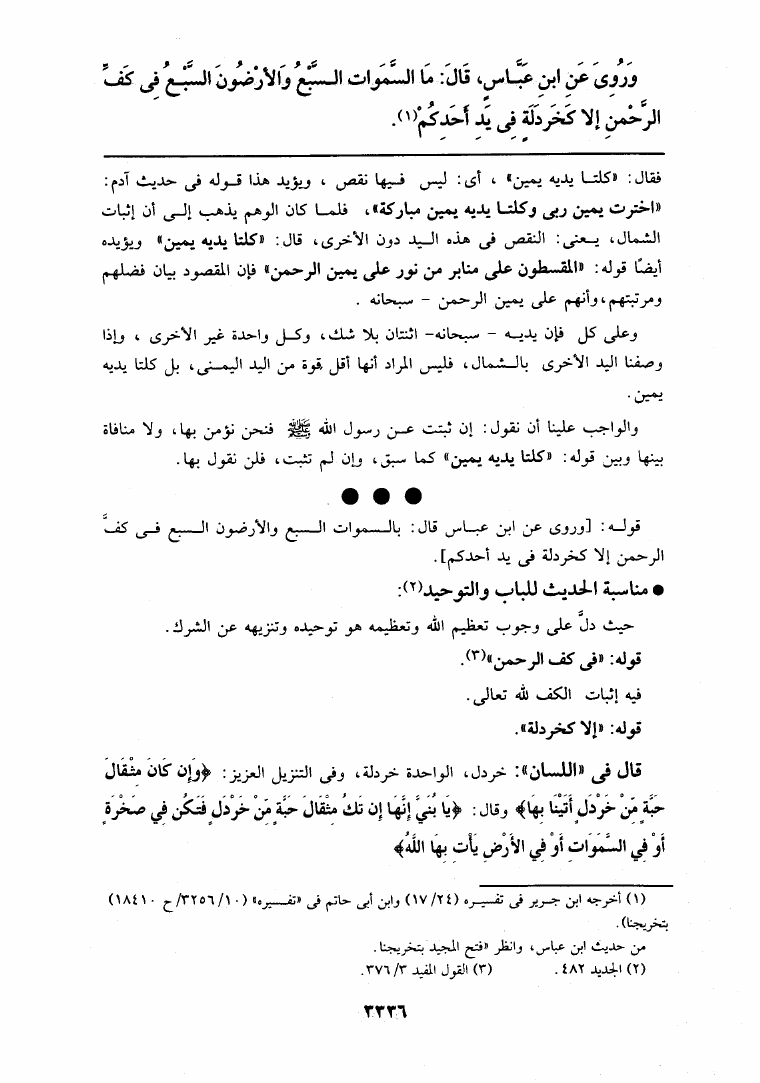 وَرُوِىَ عَنِ ابنِ عَبَّاسٍ، قَالَ: مَا السَّمَوات السَّبْعُ وَالأرْضُونَ السَّبْعُ فِى كَفِّ
الرَّحْمنِ إلا كَخَرْدَلَةٍ فِى يَدِ أحَدِكُمْ(١).
فقال: «كلتا يديه يمين» ، أى: ليس فيها نقص ، ويؤيد هذا قوله فى حديث آدم:
«اخترت يمين ربى وكلتا يديه يمين مباركة»، فلما كان الوهم يذهب إلى أن إثبات
الشمال، يعنى: النقص فى هذه اليد دون الأخرى، قال: «كلتا يديه يمين» ويؤيده
أيضًا قوله: «المقسطون على منابر من نور على يمين الرحمن» فإن المقصود بيان فضلهم
ومرتبتهم،وأنهم على يمين الرحمن - سبحانه .
وعلى كل فإن يديه - سبحانه- اثنتان بلا شك، وكل واحدة غير الأخرى ، وإذا
وصفنا اليد الأخرى بالشمال، فليس المراد أنها أقل قوة من اليد اليمنى، بل كلتا يديه
يمين.
والواجب علينا أن نقول: إن ثبتت عن رسول الله ﷺ فنحن نؤمن بها، ولا منافاة
بينها وبين قوله: «كلتا يديه يمين» كما سبق، وإن لم تثبت، فلن نقول بها.
● ● ●
قوله: [وروى عن ابن عباس قال: بالسموات السبع والأرضون السبع فى كفَّ
الرحمن إلا كخردلة فى يد أحدكم].
● مناسبة الحديث للباب والتوحيد(٢):
حيث دلَّ على وجوب تعظيم الله وتعظيمه هو توحيده وتنزيهه عن الشرك.
قوله: «فى كف الرحمن»(٣).
فيه إثبات الكف لله تعالى.
قوله: «إلا كخردلة».
قال فى «اللسان»: خردل، الواحدة خردلة، وفى التنزيل العزيز: ﴿وَإِن كَانَ مِثْقَالَ
حَبَّةٍ مِّنْ خَرْدَلٍ أَتَيْنَا بِهَا﴾ وقال: ﴿يَا بُنَيَّ إِنَّهَا إِن تَكُ مِثْقَالَ حَبَّةٍ مِّنْ خَرْدَلٍ فَتَكُن فِي صَخْرَةٍ
أَوْ فِي السَّمَوَاتِ أَوْ فِي الأَرْضِ يَأْتِ بِهَا اللَّهُ﴾
(١) أخرجه ابن جرير فى تفسيره (١٧/٢٤) وابن أبى حاتم فى «تفسيره» (٣٢٥٦/١٠/ح ١٨٤١٠
بتخريجنا).
من حديث ابن عباس، وانظر «فتح المجيد بتخريجنا.
(٢) الجديد ٤٨٢ . (٣) القول المفيد ٣٧٦/٣.
٣٣٣٦